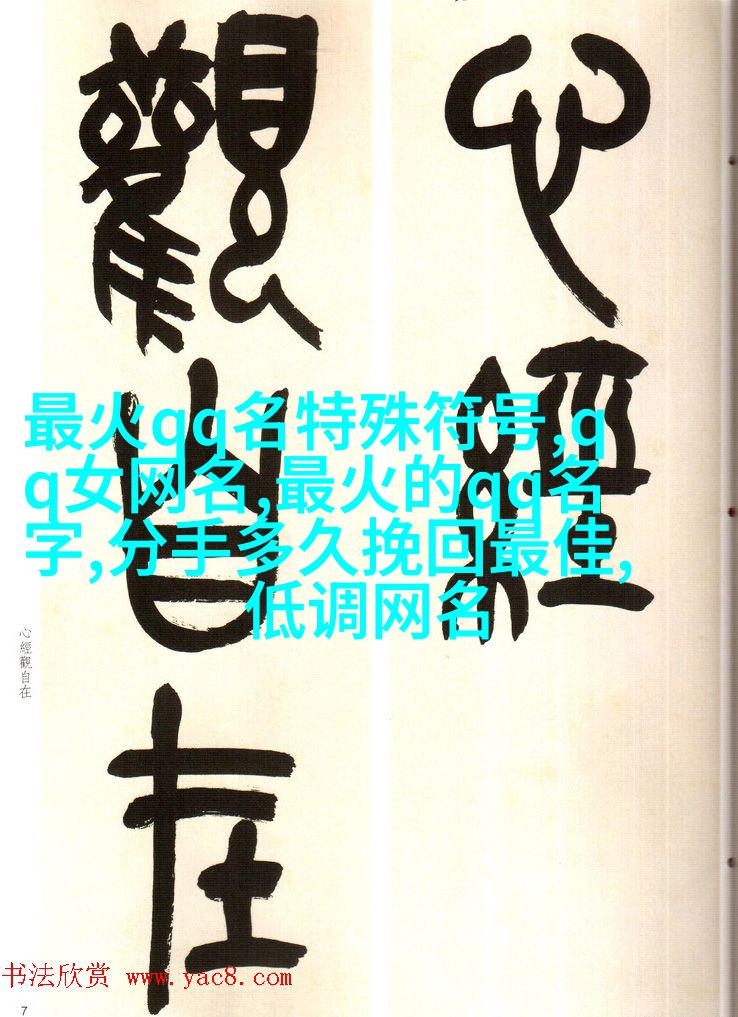 心經
觀自在
最火qq名特殊符号,q
q女网名,最火的qq名
字,分手多久挽回最佳,
低调网名
心經觀自在
书法欣赏 www.yac8.com
7